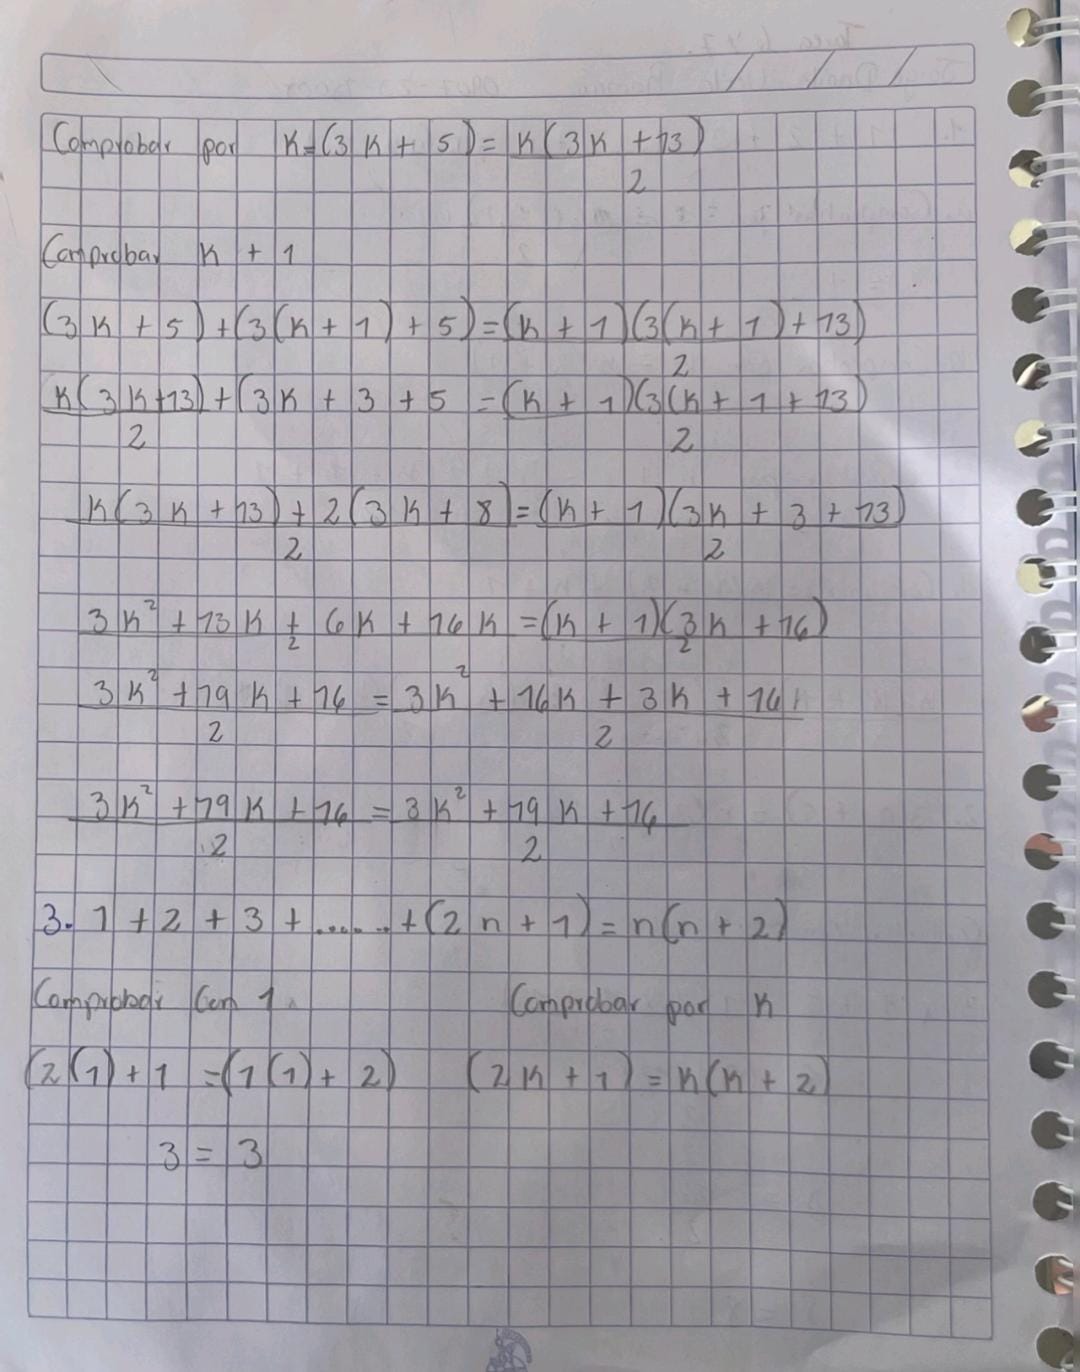 Comprobar por K=(3K+5)=K(3K+13)
2
Comprobar K+1
(3K+5)+(3(K+1)+5)=(K+1)(3(K+1)+13)
2
K(3K+13)+(3K+3+5=(K+1)(3(K+1+13)
2 2
K(3K+13)+2(3K+8)=(K+1)(3K+3+13)
2 2
3K²+13K+6K+16K=(K+1)(3K+16)
2 2
3K²+19K+16=3K²+16K+3K+16
2 2
3K²+19K+16=3K²+19K+16
2 2
3. 1+2+3+......+(2n+1)=n(n+2)
Comprobar Con 1 Comprobar por K
(2(1)+1=(1(1)+2) (2K+1)=K(K+2)
3=3